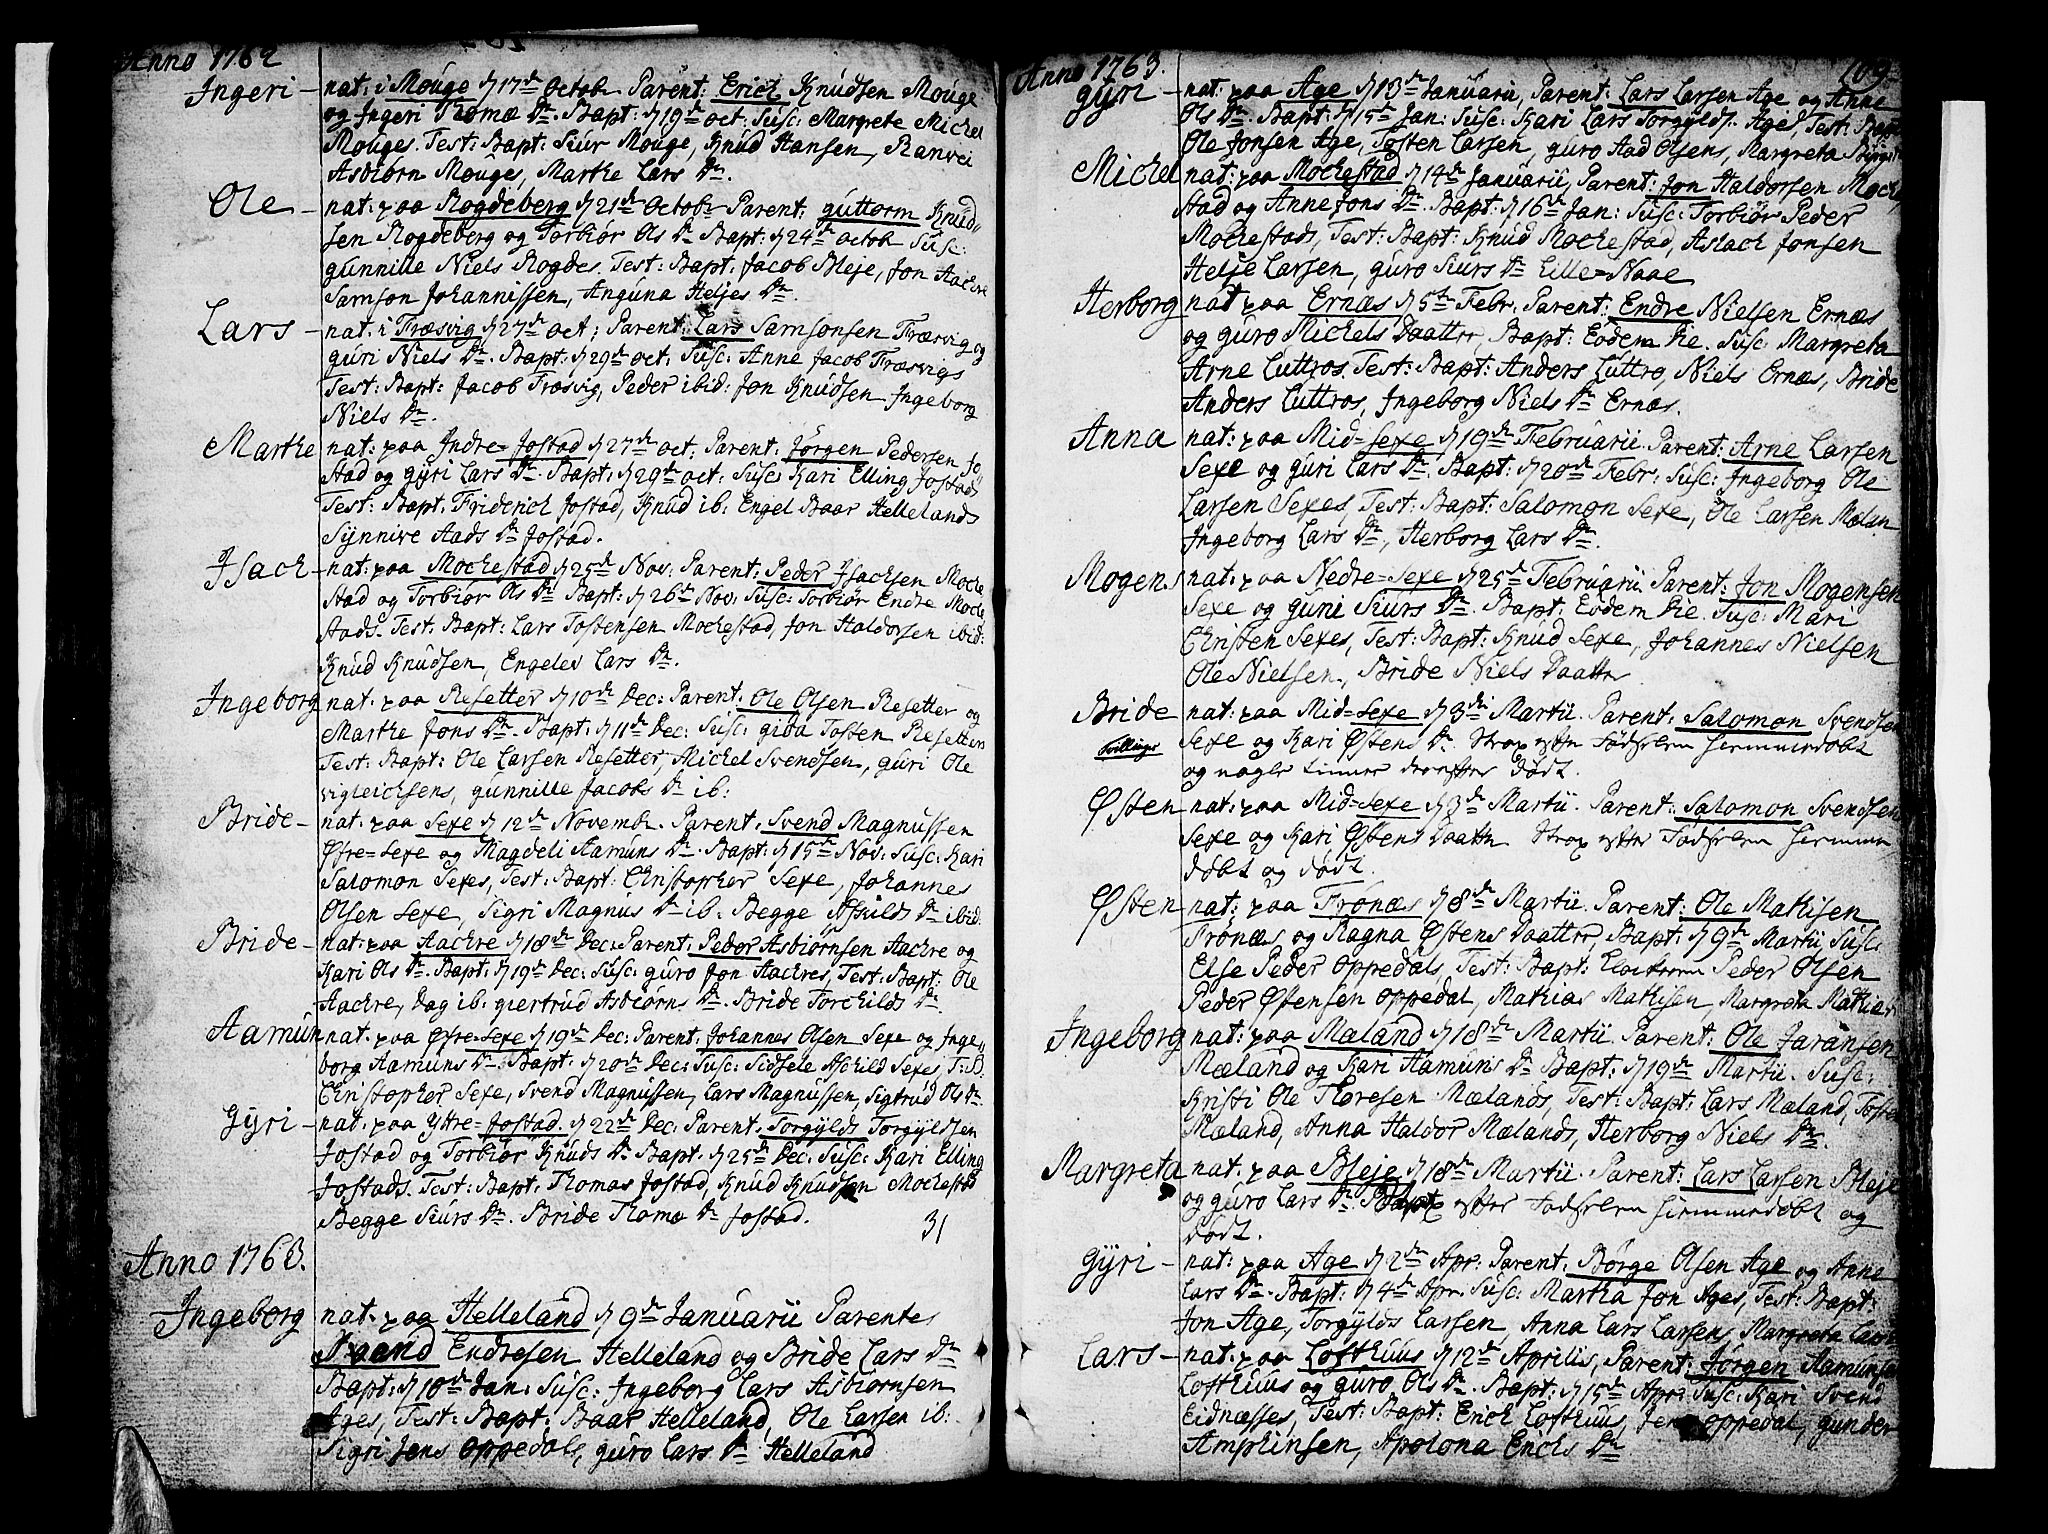 Anno 1762
Ingeri - nat: i Mouge d 17de Octob: Parent: Erich Knudsen Mouge
og Ingeri Thomæ Dr. Bapt: d 19de oct: Susc: Margrete Michel
Mouges. Test: Bapt: Siur Mouge, Knud Hansen, Ranvei
Asbiørn Mouge, Marthe Lars Dr.
Ole - nat: paa Rogdeberg d 21de Octobr Parent: guttorm Knud-
sen Rogdeberg og Torbiør Ols Dr Bapt: d 24de octob Susc:
gunnille Niels Rogdes. Test: Bapt: Jacob Bleje, Jon Aachre
Samson Johannissen, Anguna Heljes Dr.
Lars - nat: i Træsvig d 27de oct: Parent: Lars Samsonsen Træsvig og
guri Niels Dr. Bapt: d 29de oct: Susc: Anne Jacob Træsvigs
Test: Bapt: Jacob Træsvig, Peder ibid: Jon Knudsen Ingeborg
Niels Dr.
Marthe nat: paa Indre=Jostad d 27de oct: Parent: Jørgen Pedersen Jo
stad og gyri Lars Dr. Bapt: d 29de oct: Susc: Kari Elling Jostads
Test: Bapt: Friderich Jostad, Knud ib: Engel Baar Hellelands
Synnive Aads Dr Jostad.
Isach - nat: paa Mochestad d 25de Nov: Parent: Peder Isachsen Moche
stad og Torbiør Ols Dr Bapt: d 26de Nov: Susc: Torbiør Endre Moche
stads. Test: Bapt: Lars Tostensen Mochestad, Jon Haldorsen ibid:
Knud Knudsen, Engelev Lars Dr.
Ingeborg nat: paa Resetter d 10de Dec: Parent: Ole Olsen Resetter og
Marthe Jons Dr. Bapt: d 11de Dec: Susc: giða Tosten Resetters
Test: Bapt: Ole Larsen Resetter, Michel Svendsen, guri Ole
vigleichsens, gunnille Jacobs Dr ib:
Bride - nat: paa Sexe d 12de Novembr. Parent: Svend Magnussen
Øfre=Sexe og Magdeli Aamuns Dr. Bapt: d 15de Nov: Susc: Kari
Salomon Sexes, Test: Bapt: Christopher Sexe, Johannes
Olsen Sexe, Sigri Magnus Dr ib: Begge Assulds Dr ibid.
Bride - nat: paa Aachre d 18de Dec: Parent: Peder Asbiørnsen Aachre og
Kari Ols Dr. Bapt: d 19de Dec: Susc: guro Jon Aachres, Test: Bapt: Ole
Aachre, Dag ib: giertrud Asbiørns Dr. Bride Torchilds Dr.
Aamun nat: paa Øfre=Sexe d 19de Dec: Parent: Johannes Olsen Sexe og Inge-
borg Aamuns Dr Bapt: d 20de Dec: Susc: Sidsele Aschild Sexes, T: B.
Christopher Sexe, Svend Magnussen, Lars Magnussen, Sigtrud Ols Dr.
Gyri - nat: paa Yttre=Jostad d 22de Dec: Parent: Torgylds Torgyldsen
Jostad og Torbiør Knuds Dr. Bapt: d 25de Dec: Susc: Kari Elling
Jostads. Test: Bapt: Thomas Jostad, Knud Knudsen Mochestad
Begge Siurs Dr. Bride Thoma Dr Jostad.
31
Anno 1763.
Ingeborg nat: paa Helleland d 9de Januarii Parentes
Endresen Helleland og Bride Lars Dr
Bapt: d 10de Jan: Susc: Ingeborg Lars Asbiørnsen
Ages, Test: Bapt: Baar Helleland, Ole Larsen ib:
Sigri Jens Oppedals, guro Lars Dr Helleland
Anno 1763.
109
gyri - nat: paa Age d 13de Januarii, Parent: Lars Larsen Age og Anne
Ols Dr. Bapt: d 15de Jan: Susc: Kari Lars Torgylds. Age, Test: Bapt:
Ole Jonsen Age, Tosten Larsen, guro Aad Olsens, Margreta
Michel nat: paa Mochestad d 14de Januarii, Parent: Jon Haldorsen Moche
stad og Anne Jons Dr. Bapt: d 16de Jan: Susc: Torbiør Peder
Mochestads, Test: Bapt: Knud Mochestad, Aslach Jonsen
Helje Larsen, guro Siurs Dr Lille=Naae
Herborg nat paa Ernæs d 5te Febr. Parent: Endre Nielsen Ernæs
og guro Michels Daatter, Bapt: Eodem Die. Susc: Margreta
Arne Luttros, Test: Bapt: Anders Luttro, Niels Ernæs, Bride
Anders Luttros, Ingeborg Niels Dr Ernæs.
Anna nat: paa Mid=Sexe d 19de Februarii. Parent: Arne Larsen
Sexe og guri Lars Dr. Bapt: d 20de Febr: Susc: Ingeborg Ole
Larsen Sexes, Test: Bapt: Salomon Sexe, Ole Larsen Mælan
Ingeborg Lars Dr, Herborg Lars Dr.
Mogens nat: paa Nedre=Sexe d 25de Februarii Parent: Jon Mogensen
Sexe og guni Siurs Dr. Bapt: Eodem Die. Susc: Mari
Christen Sexes, Test: Bapt: Knud Sexe, Johannes Nielsen
Ole Nielsen, Bride Niels Daatter
Bride nat: paa Mid=Sexe d 3die Martii. Parent: Salomon Svendsen
Tvillinge Sexe og Kari Østens Dr. Strax efter Fødselen hiemmedøbt
og nogle timer derefter dødt.
Østen nat: paa Mid=Sexe d 3de Martii. Parent: Salomon Svendsen
Sexe og Kari Østens Daatter Strax efter Fødselen hiemme
døbt og dødt.
Østen nat: paa Frønæs d 8de Martii. Parent: Ole Mathisen
Frønæs og Ragna Østens Daatter, Bapt: d 9de Martii Susc:
Else Peder Oppedals, Test: Bapt: Klockeren Peder Olsen
Peder Østensen Oppedal, Mathias Mathisen, Margreta Mathias
Ingeborg nat: paa Mæland d 18de Martii. Parent: Ole Jaransen
Mæland og Kari Aamuns Dr Bapt: d 19de Martii. Susc:
Kristi Ole Thoresen Mælands, Test: Bapt: Lars Mæland, Tosten
Mæland, Anna Haldor Mælands, Herborg Niels Dr.
Margreta nat: paa Bleje d 18de Martii. Parent: Lars Larsen Bleje
og guro Lars Dr. efter Fødselen hiemmedøbt og
dødt.
gyri - nat: paa Age d 2de Apr: Parent: Børge Olsen Age og Anne
Lars Dr. Bapt: d 4de Apr. Susc: Martha Jon Ages, Test: Bapt:
Jon Age, Torgylds Larsen, Anna Lars Larsens, Margreta
Lars - nat: paa Lofthuus d 12de Aprilis, Parent: Jørgen Aamunsen
Lofthuus og guro Ols Dr. Bapt: d 15de Apr: Susc: Kari Svend
Eidnæsses, Test: Bapt: Erich Lofthuus, Jens Oppedal, gunder
Amphinsen, Apolona Erichs Dr